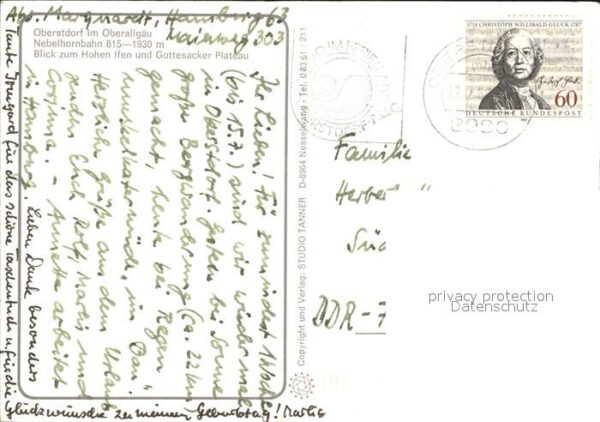 Abs. Marquardt, Hamburg 63
Maienweg 303
Oberstdorf im Oberallgäu
Nebelhornbahn 815—1930 m
Blick zum Hohen Ifen und Gottesacker Plateau
Ihr Lieben! Für zumindest 1 Woche
(bis 15.7.) sind wir wieder mal
in Oberstdorf. Gestern bei Sonne
große Bergwanderung (ca. 22 km)
gemacht, heute bei Regen
im Bau".
Herzliche Grüße aus dem Urlaub
senden Euch Rolf, Marlis und
Cosima. - Annette arbeitet
in Hamburg. Lieben Dank besonders
Tante Irmgard für das schöne Taschentuch u. für die
Glückwünsche zu meinem Geburtstag! Marlis
Copyright und Verlag: STUDIO TANNER D-8964 Nesselwang · Tel. 0 83 61 / 211
1714 CHRISTOPH WILLIBALD GLUCK 1787
60
DEUTSCHE BUNDESPOST
8980
Familie
Herbert
Süd
DDR-7
privacy protection
Datenschutz